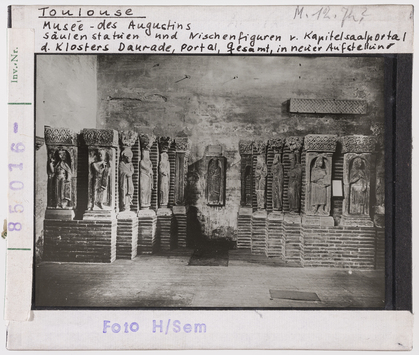 Toulouse
Musée - des Augustins
Säulenstatuen und Nischenfiguren v. Kapitelsaalportal
d. Klosters Daurade, Portal, Gesamt, in neuer Aufstellung
Inv.-Nr.
85016-
Foto H/Sem